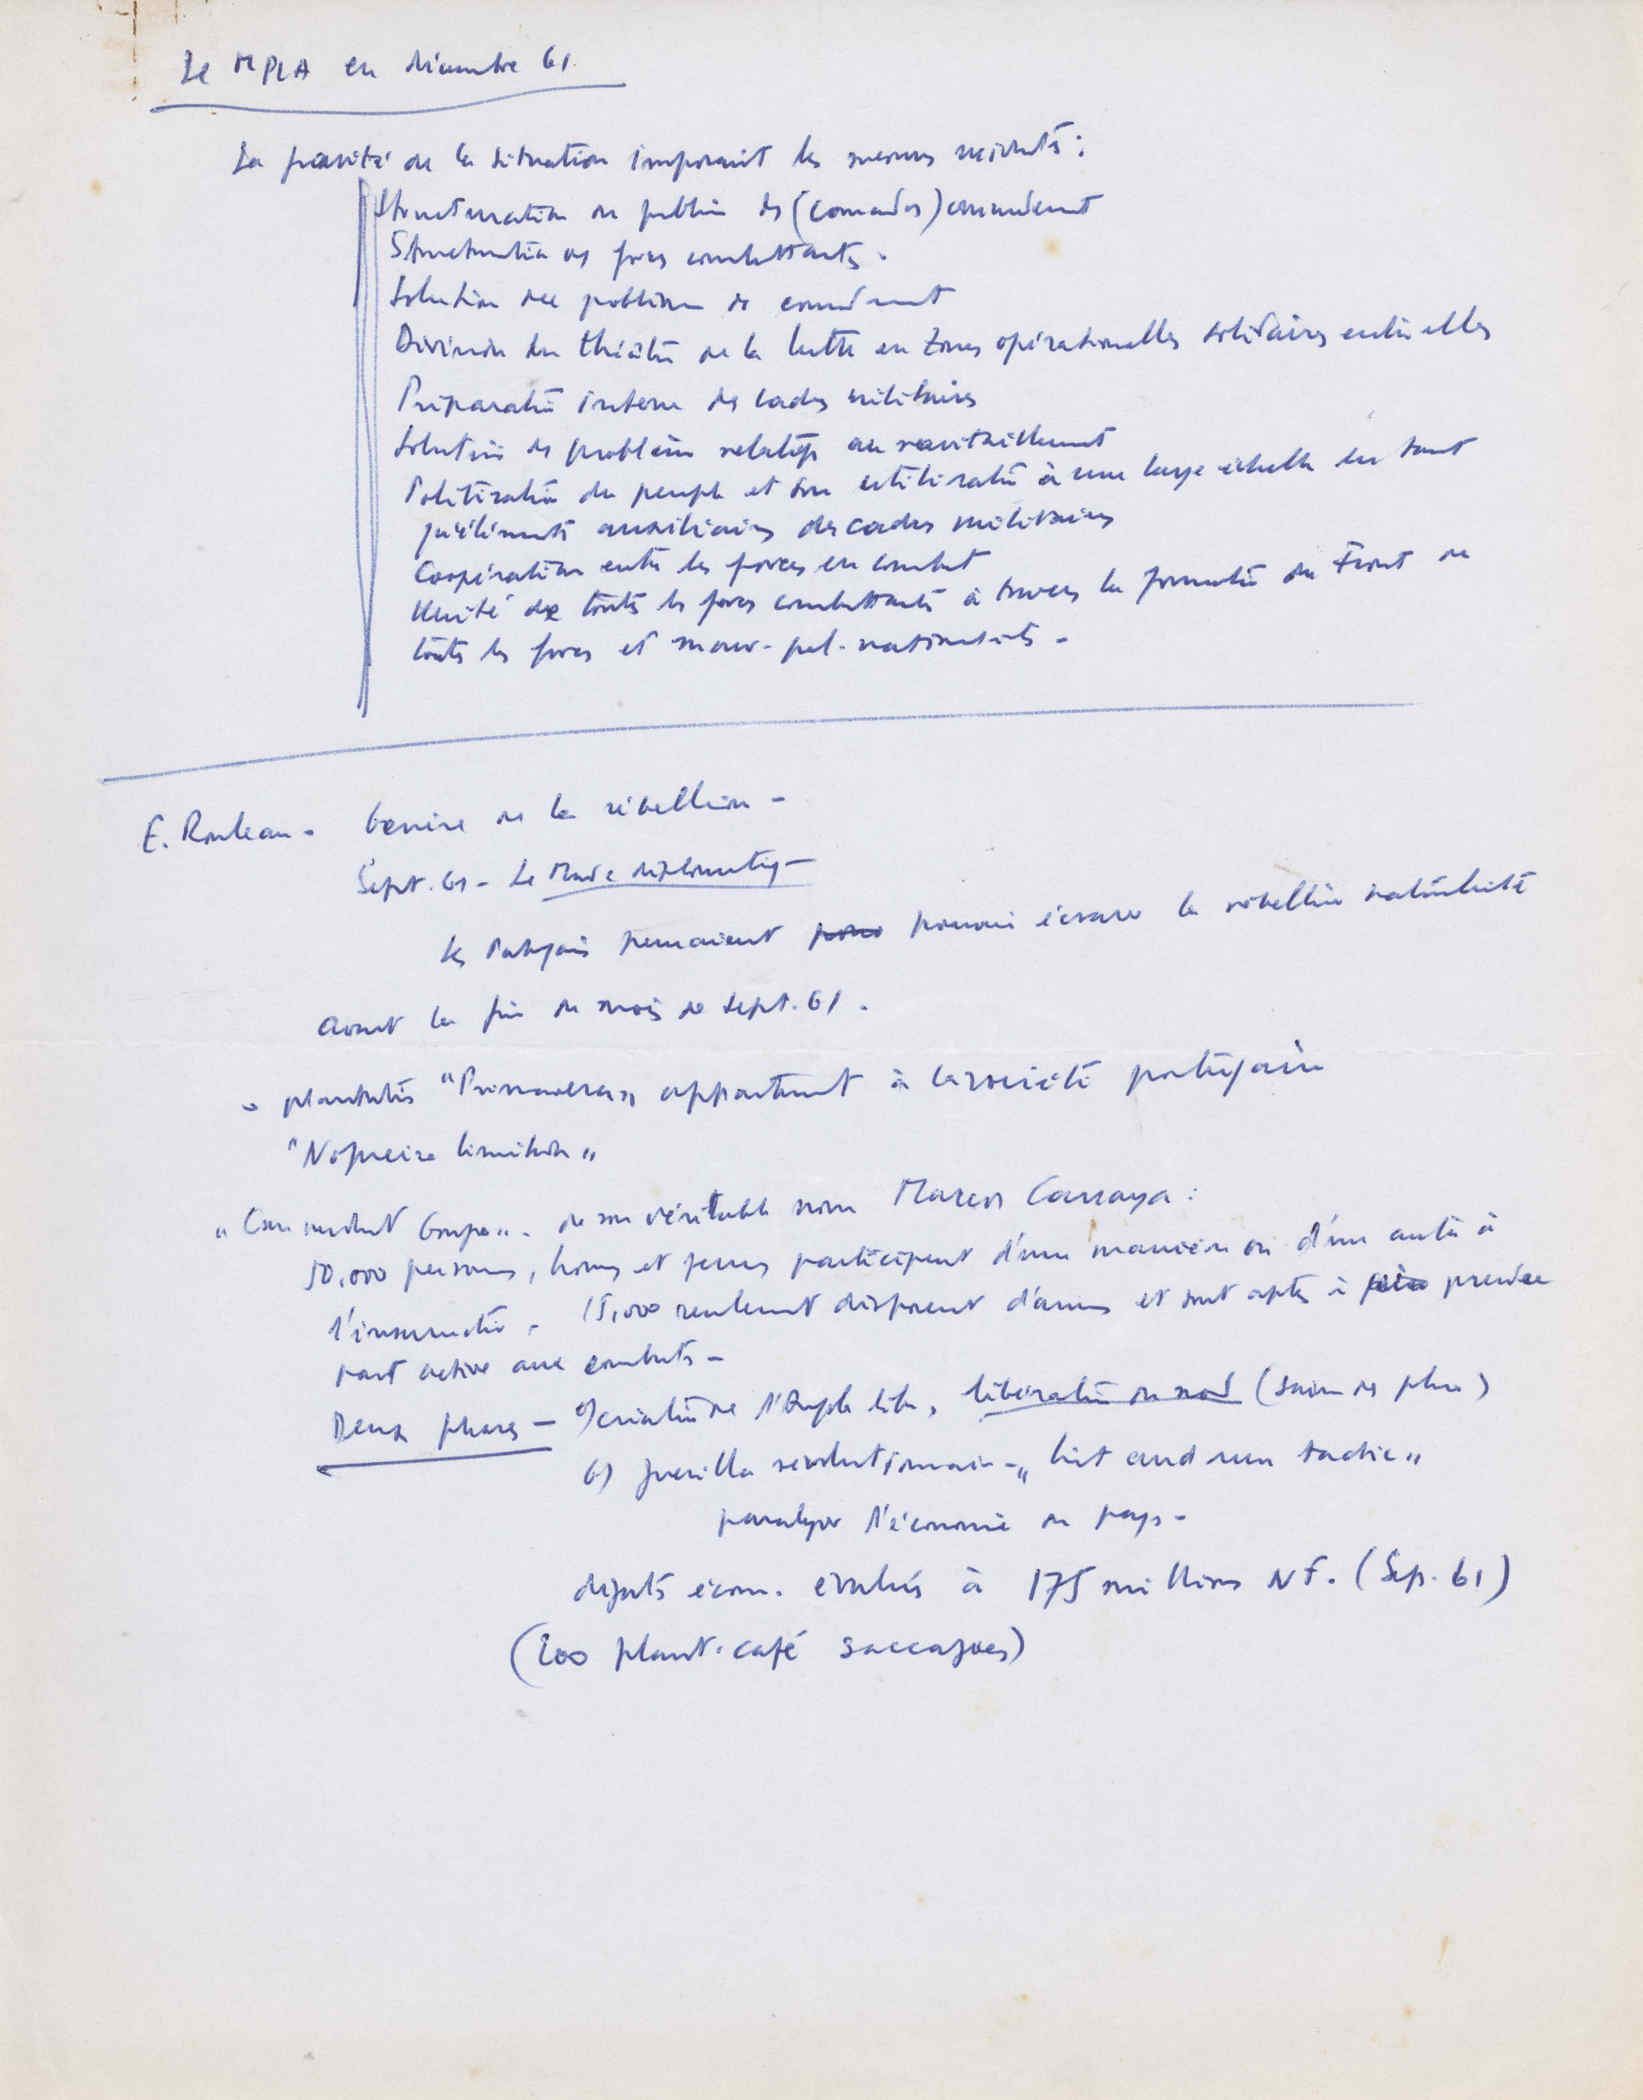 Le MPLA en décembre 61
La gravité de la situation imposait les mesures suivantes :
Structuration du problème des (comandos) commandement
Structuration des forces combattantes.
Solution du problème de commandement
Division du théâtre de la lutte en zones opérationnelles solidaires entre elles
Préparation interne des cadres militaires
Solution des problèmes relatifs au ravitaillement
Politisation du peuple et son utilisation à une large échelle en tant
qu'éléments auxiliaires des cadres militaires
Coopération entre les forces en combat
Unité de toutes les forces combattantes à travers la formation du Front de
toutes les forces et mouv. pol. nationalistes -
E. Rouleau - Genèse de la rébellion -
Sept. 61 - Le Monde diplomatiq -
les Portugais pensaient pouvoir écraser la rébellion nationaliste
avant la fin du mois de Sept. 61.
plantations "Primavera" appartenant à la société portugaise
"Nogueira limitada"
"Commandant" - de son véritable nom Marcos Cassanga :
50.000 personnes, hommes et femmes participent d'une manière ou d'une autre à
l'insurrection. 15,000 seulement disposent d'armes et sont aptes à prendre
part active aux combats -
Deux phases - a) création de l'Angola libre, libération du nord (saison des pluies)
b) guerilla révolutionnaire - "hit and run tactic"
paralyser l'économie du pays -
dégâts écon. évalués à 175 millions NF. (Sep. 61)
(200 plant. café saccagées)